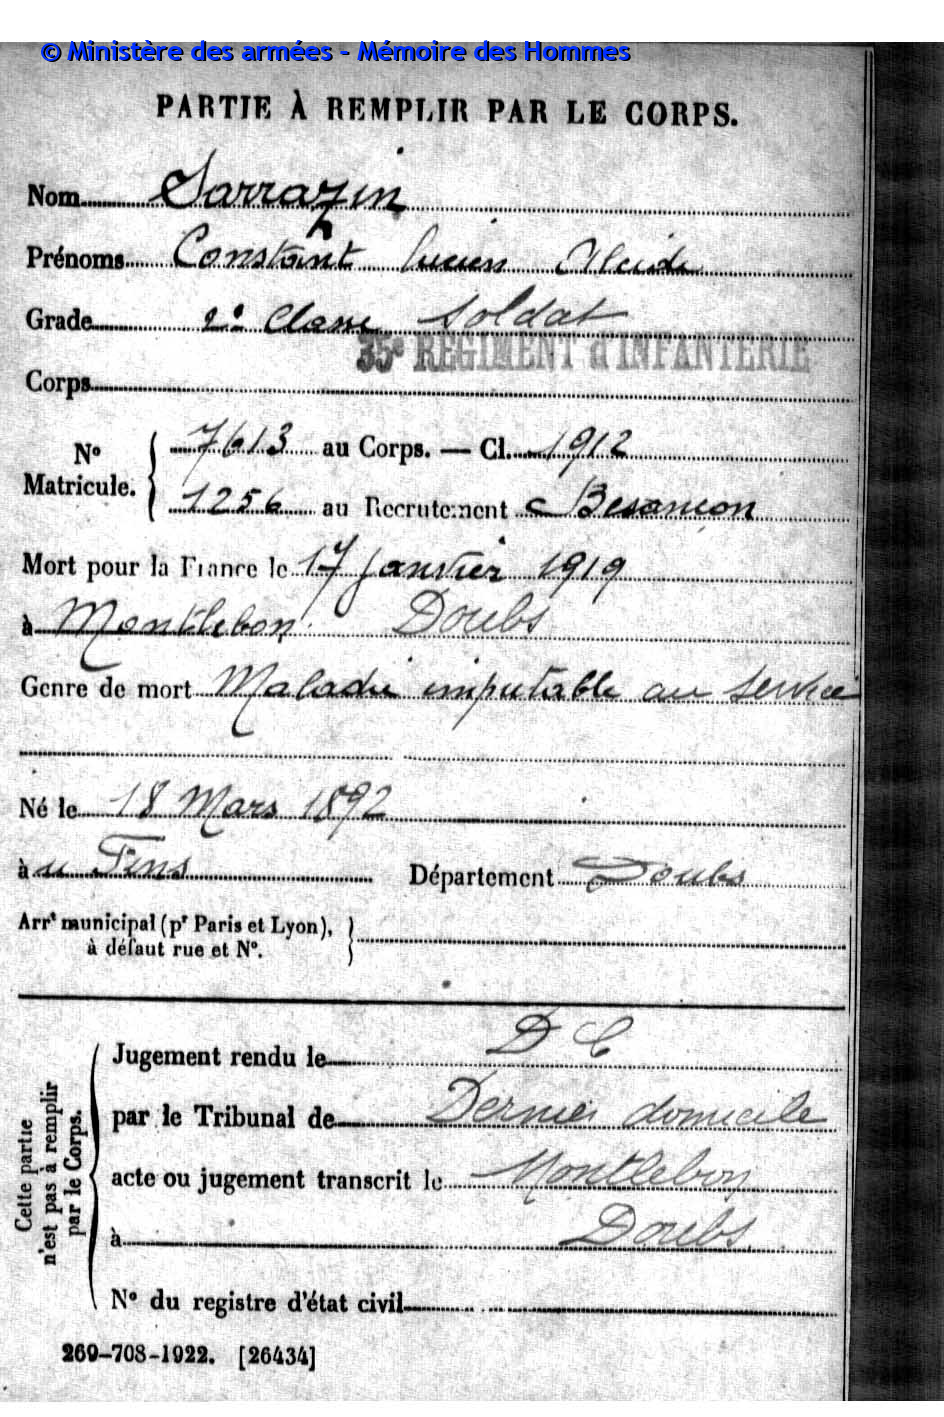 © Ministère des armées - Mémoire des Hommes
PARTIE À REMPLIR PAR LE CORPS.
Nom Sarrazin
Prénoms Constant Lucien Alcide
Grade 2e Classe Soldat
35e REGIMENT d'INFANTERIE
Corps
No Matricule.
7613 au Corps. — Cl. 1912
1256 au Recrutement Besançon
Mort pour la France le 17 janvier 1919
à Montlebon. Doubs
Genre de mort Maladie imputable au service
Né le 18 Mars 1892
à u Fins Département Doubs
Arrt municipal (pr Paris et Lyon),
à défaut rue et No.
Cette partie n'est pas à remplir par le Corps.
Jugement rendu le D C
par le Tribunal de Dernier domicile
acte ou jugement transcrit le Montlebon
à Doubs
No du registre d'état civil
269-708-1922. [26434]